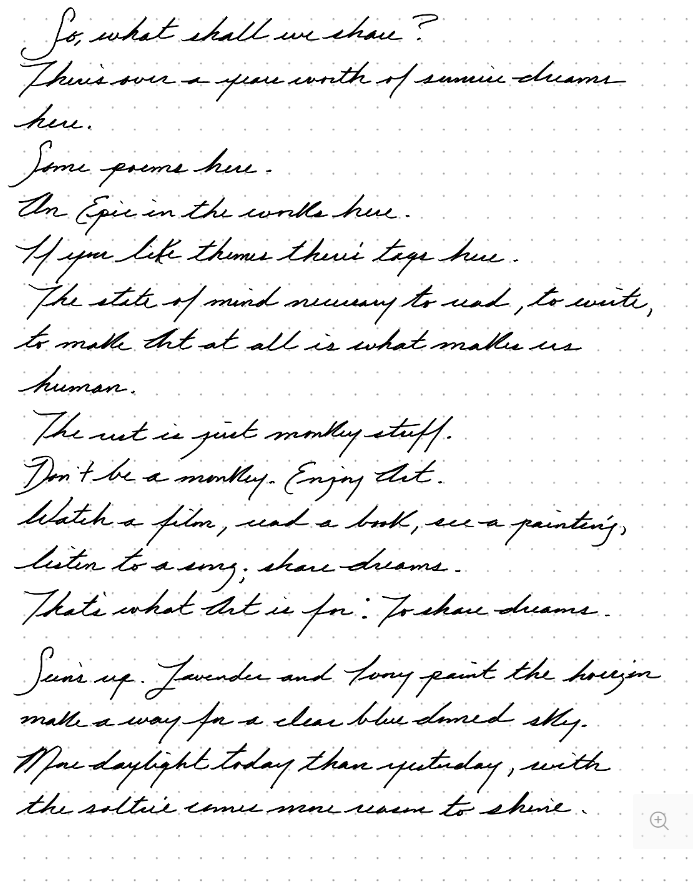 So, what shall we share?
There's over a years worth of sunrise dreams
here.
Some poems here.
An Epic in the works here.
If you like themes there's tags here.
The state of mind necessary to read, to write,
to make Art at all is what makes us
human.
The rest is just monkey stuff.
Don't be a monkey. Enjoy Art.
Watch a film, read a book, see a painting,
listen to a song; share dreams.
That's what Art is for: To share dreams.
Sun's up. Lavender and Ivory paint the horizon
make a way for a clear blue domed sky.
More daylight today than yesterday, with
the soltice comes more reason to shine.